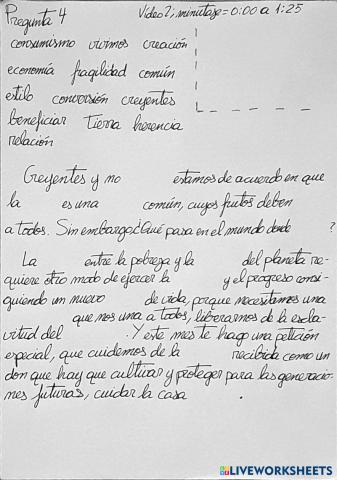 Pregunta 4
Video 2; minutaje = 0:00 a 1:25
consumismo vivimos creación
economía fragilidad común
estilo conversión creyentes
beneficiar Tierra herencia
relación
Creyentes y no estamos de acuerdo en que
la es una común, cuyos frutos deben
a todos. Sin embargo, ¿Qué pasa en el mundo donde ?
La entre la pobreza y la del planeta re-
quiere otro modo de ejercer la y el progreso consi-
guiendo un nuevo de vida, porque necesitamos una
que nos una a todos, liberarnos de la escla-
vitud del . Y este mes te hago una petición
especial, que cuidemos de la recibida como un
don que hay que cultivar y proteger para las generacio-
nes futuras, cuidar la casa .
LIVEWORKSHEETS